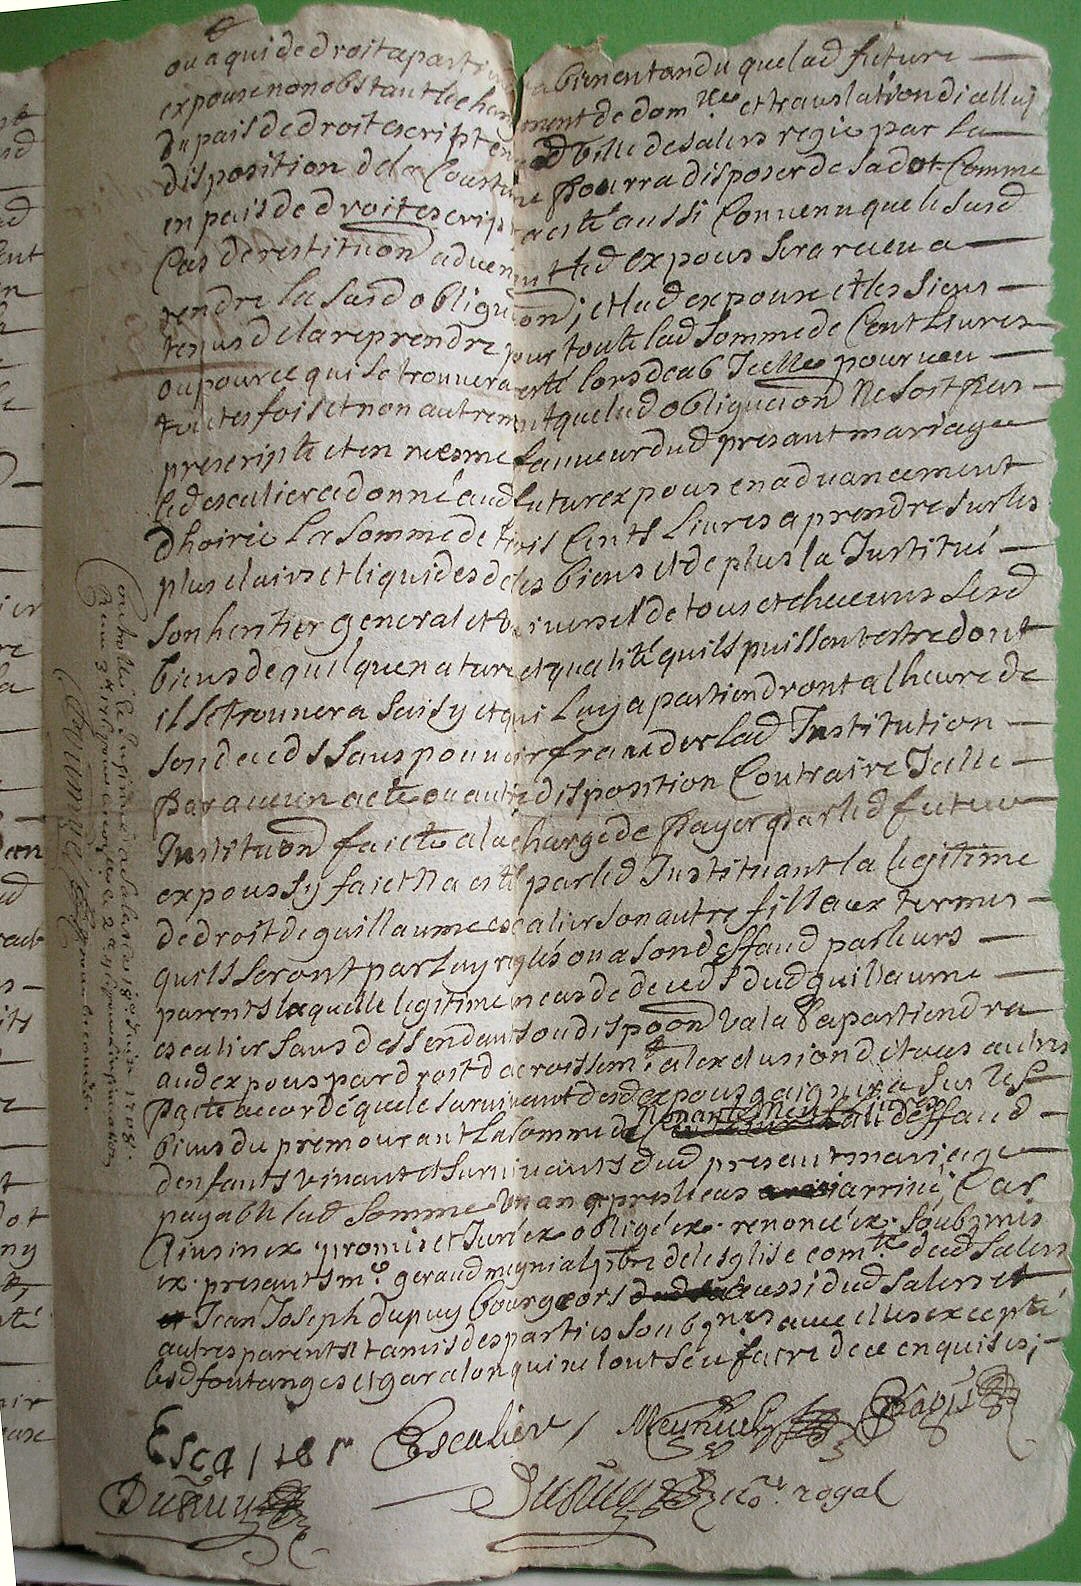 ou a qui de droit apartiendra bien entandu que lad future
expouse nonobstant le changement de dom.lle et translation dicelluy
du pais de droit escript en lad ville de salers regie par la
disposition de la Coustume pourra disposer de sa dot Comme
en pais de droit escript et a esté aussi Convenu que le susd
Cas de restitution advenant led expous sera receu a
rendre la susd obligaon ; et lad expouse et les siens
tenus de la reprendre pour toute lad somme de Cent Livres
ou pour ce qui se trouvera esté lors deub Icelle pourveu
toutesfois et non autrement que lad obligaon ne soit pas
prescripte et en mesme faveur dud presant mariage
led escalier a donné aud futur expous en advancement
dhoirie La somme de trois Cents Livres a prendre sur les
plus clairs et liquides de ses biens et de plus la Institué
son heritier general et universel de tous et chacuns sesd
biens de quelque nature et qualité quils puissent estre dont
il se trouvera saisy et qui Luy apartiendront a lheure de
son deceds sans pouvoir frauder lad Institution
par aucun acte ou autre disposition Contraire Icelle
Instituon faicte a la charge de payer par led futur
expous sy faict na esté par led Instituant la legitime
de droit de guillaume escalier son autre fils aux termes
quils seront par Luy reglés ou a son deffaud par leurs
parents laquelle legitime en cas de deceds dud guillaume
escalier sans dessendants ou dispoon valable apartiendra
aud expous par droit dacroissemt a lexclusion de tous autres
pacte accordé que le survivant desd expous gaignera sur les
biens du premourant La somme de nonante neuf Livres a deffaud
denfants vivants et survivants dud presant mariage
payable lad somme un an apres le cas arrivé, Car
Ainsin ex promis et juré ex obligé ex renoncé ex soubzmis
ex presants me geraud meynial pbre de lesglise comte dud Salers
Jean Joseph dupuy bourgeois aussi dud salers et
autres parents et amis des parties soubznes avec elles excepté
lesd fontanges et garalon qui ne lont sceu faire de ce enquises ;
Escalier Escalier Meynial
Dupuy Dupuy no.re royal
Controllé le a Salers le 18e Juin 1708.